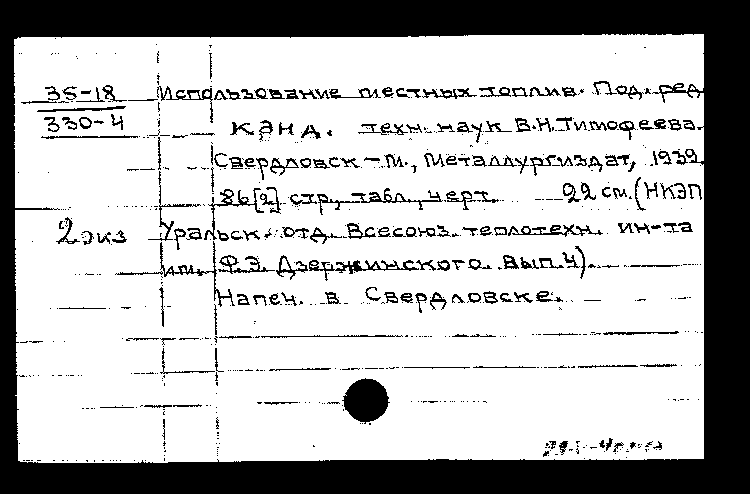 35-18 Использование местных топлив. Под. ред.
330-4 канд. техн. наук В.Н. Тимофеева.
Свердловск - М., Металлургиздат, 1939.
86[2] стр., табл., черт. 22 см. (НКЭП
2 экз Уральск. отд. Всесоюз. теплотехн. ин-та
им. Ф.Э. Дзержинского. Вып. 4).
Напеч. в Свердловске.